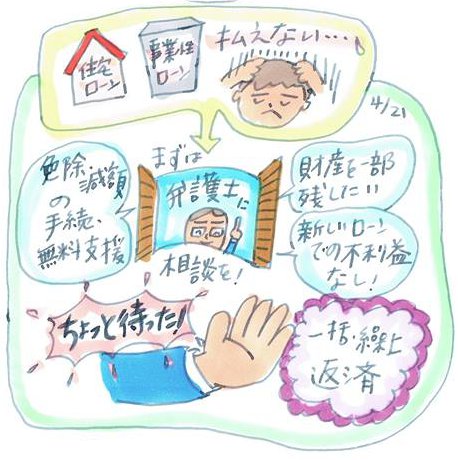 住宅
ローン
事業性
ローン
払えない…
4/21
免除・減額
の
手続、
無料支援
まずは
弁護士に
相談を!
財産を一部
残したい
新しいローン
での不利益
なし!
ちょっと待った!
一括・繰上
返済